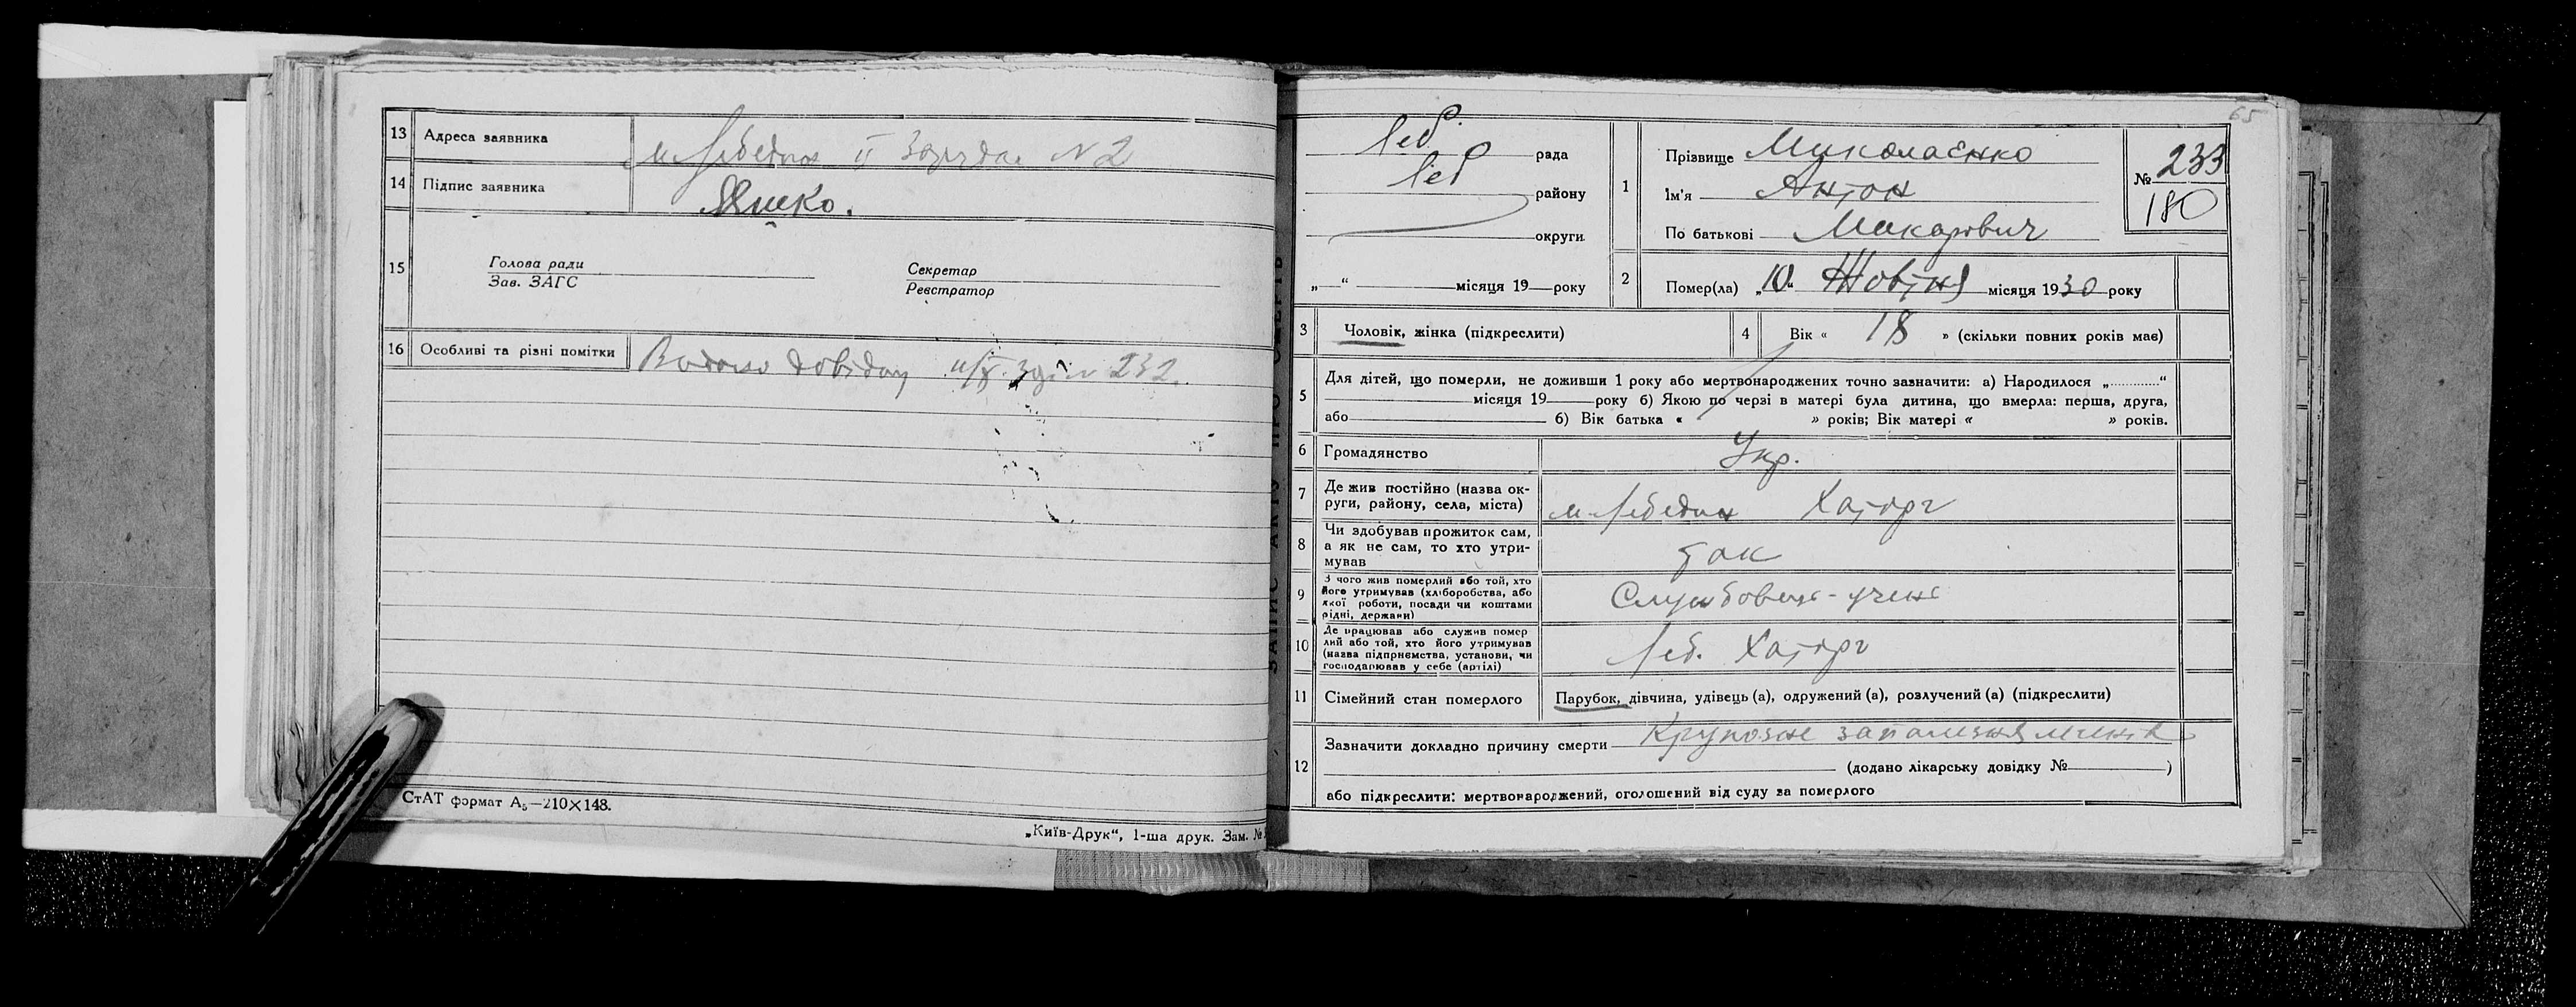 13 Адреса заявника м. Лебедин II Зарудна N 2
14 Підпис заявника
15 Голова ради
Зав. ЗАГС
Секретар
Реєстратор
16 Особливі та різні помітки 232
СтАТ формат А₅—210×148.
„Київ-Друк“, 1-ша друк. Зам. №
65
Леб. рада
Леб району
округи
„ “ місяця 19 року
1 Прізвище Миколаєнко
Ім'я Антон
По батькові Макарович
№ 233
180
2 Помер(ла) „10“ Жовтня місяця 1930 року
3 Чоловік, жінка (підкреслити)
4 Вік « 18 » (скільки повних років має)
5 Для дітей, що померли, не доживши 1 року або мертвонароджених точно зазначити: а) Народилося „.............“
місяця 19 року б) Якою по черзі в матері була дитина, що вмерла: перша, друга,
або б) Вік батька « » років; Вік матері « » років.
6 Громадянство Укр.
7 Де жив постійно (назва ок-
руги, району, села, міста) м. Лебедин Хаторг
8 Чи здобував прожиток сам,
а як не сам, то хто утри-
мував так
9 З чого жив померлий або той, хто
його утримував (хліборобства, або
якої роботи, посади чи коштами
рідні, держави) Службовець - учень
10 Де працював або служив помер
лий або той, хто його утримував
(назва підприємства, установи, чи
господарював у себе (артілі) Леб. Хаторг
11 Сімейний стан померлого Парубок, дівчина, удівець (а), одружений (а), розлучений (а) (підкреслити)
12 Зазначити докладно причину смерти Крупозне запалення легенів
(додано лікарську довідку № )
або підкреслити: мертвонароджений, оголошений від суду за померлого